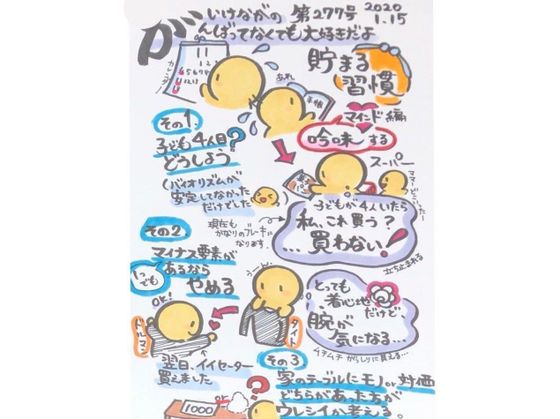 いけながの 第277号 2020 1.15
がんばってなくても大好きだよ
カレンダー
あれ
手帳
貯まる
習慣
マインド編
吟味する
その1.
子ども4人目?
どうしよう
(バイオリズムが
安定してなかった
だけでした
スーパー
子どもが4人いたら
私、これ買う?
...買わない!
現在も
かなりのブレーキに
なります.
立ち止まれる
その2.
マイナス要素が
1つでも
あるなら
やめる
OK!
タイト
ドルマン
とっても
着心地
だけど、
腕が
気になる...
ムチムチがっしりに見える...
翌日、イイセーター
買えました
その3
家のテーブルにモノor対価
どちらがあった方が
ウレシイか考える。
1000